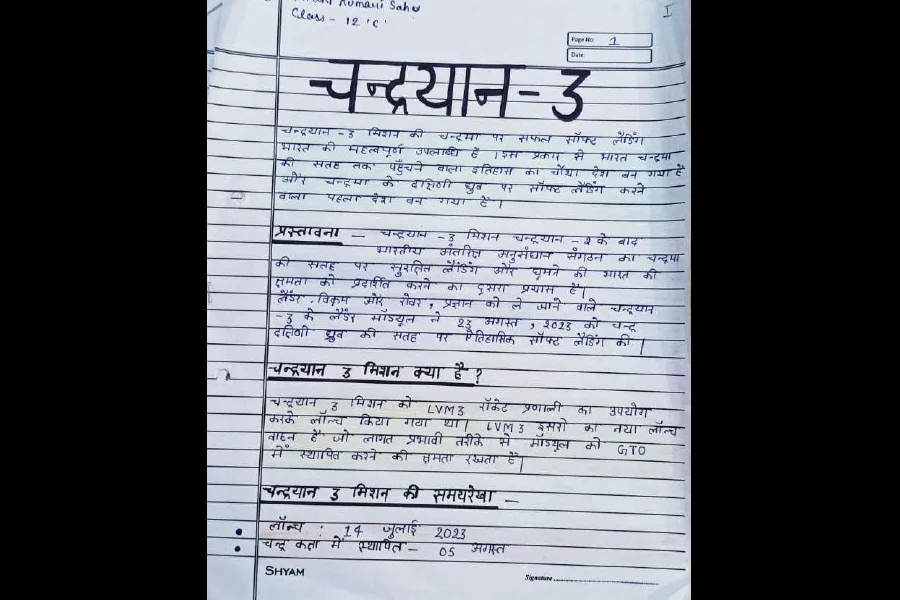 Kumari Sahu
Class - 12 'C'
I
Page No: 1
Date:
चन्द्रयान-3
चन्द्रयान -3 मिशन की चन्द्रमा पर सफल सॉफ्ट लैंडिंग
भारत की महत्वपूर्ण उपलब्धि है । इस प्रकार से भारत चन्द्रमा
की सतह तक पहुँचने वाला इतिहास का चौथा देश बन गया है
और चन्द्रमा के दक्षिणी ध्रुव पर सॉफ्ट लैंडिंग करने
वाला पहला देश बन गया है ।
प्रस्तावना - चन्द्रयान -3 मिशन चन्द्रयान -2 के बाद
भारतीय अंतरिक्ष अनुसंधान संगठन का चन्द्रमा
की सतह पर सुरक्षित लैंडिंग और घूमने की भारत की
क्षमता को प्रदर्शित करने का दुसरा प्रयास है।
लैंडर, विक्रम और रोवर, प्रज्ञान को ले जाने वाले चन्द्रयान
-3 के लैंडर मॉड्यूल ने 23 अगस्त, 2023 को चन्द्र
दक्षिणी ध्रुव की सतह पर ऐतिहासिक सॉफ्ट लैंडिंग की |
चन्द्रयान 3 मिशन क्या है ?
चन्द्रयान 3 मिशन को LVM3 रॉकेट प्रणाली का उपयोग
करके लॉन्च किया गया था| LVM3 इसरो का नया लॉन्च
वाहन है जो लागत प्रभावी तरीके से मॉड्यूल को GTO
में स्थापित करने की क्षमता रखता है|
चन्द्रयान 3 मिशन की समयरेखा -
• लॉन्च : 14 जुलाई 2023
• चन्द्र कक्षा में स्थापित - 05 अगस्त
SHYAM
Signature